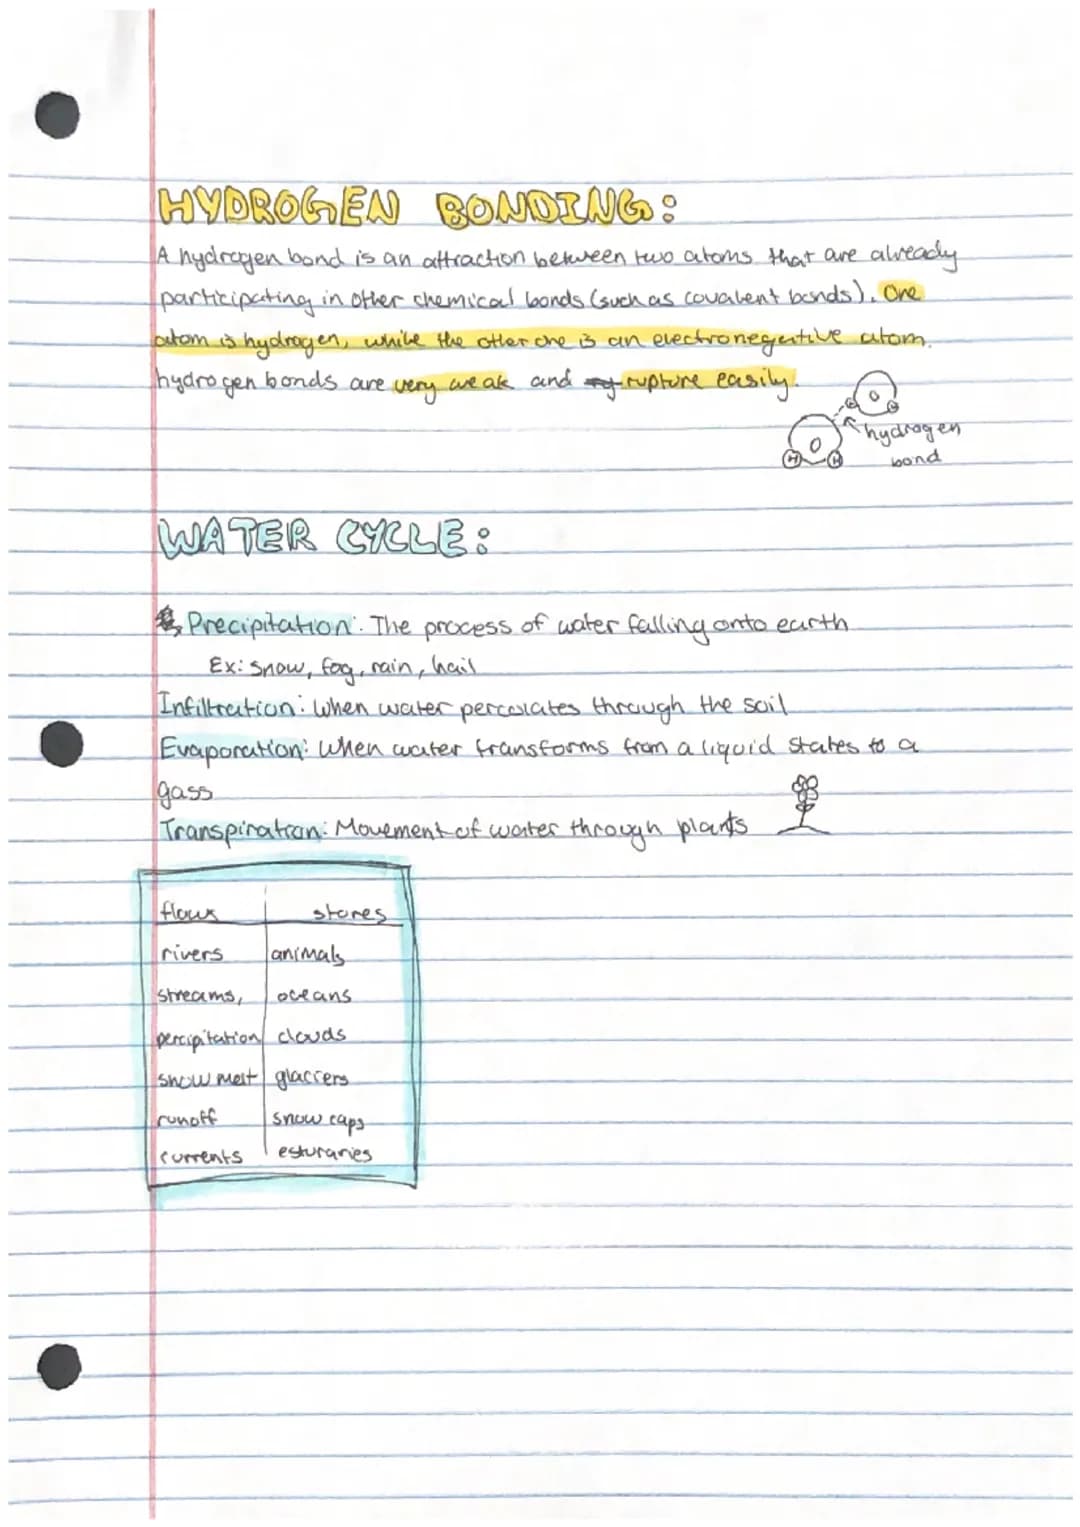 HYDROGEN BONDING:
A hydrogen bond is an attraction between two atoms that are already
participating in other chemical bonds (such as covalent bonds). One
atom is hydrogen, while the other one is an electronegative atom.
hydrogen bonds are very weak and rupture easily.
O
O
H H
hydrogen
bond
WATER CYCLE:
Precipitation: The process of water falling onto earth
Ex: Snow, fog, rain, hail
Infiltration: When water percolates through the soil
Evaporation: When water transforms from a liquid states to a
gass
Transpiration: Movement of water through plants
flows stores
rivers animals
streams, oceans
percipitation clouds
snow melt glaciers
runoff snow caps
currents esturaries